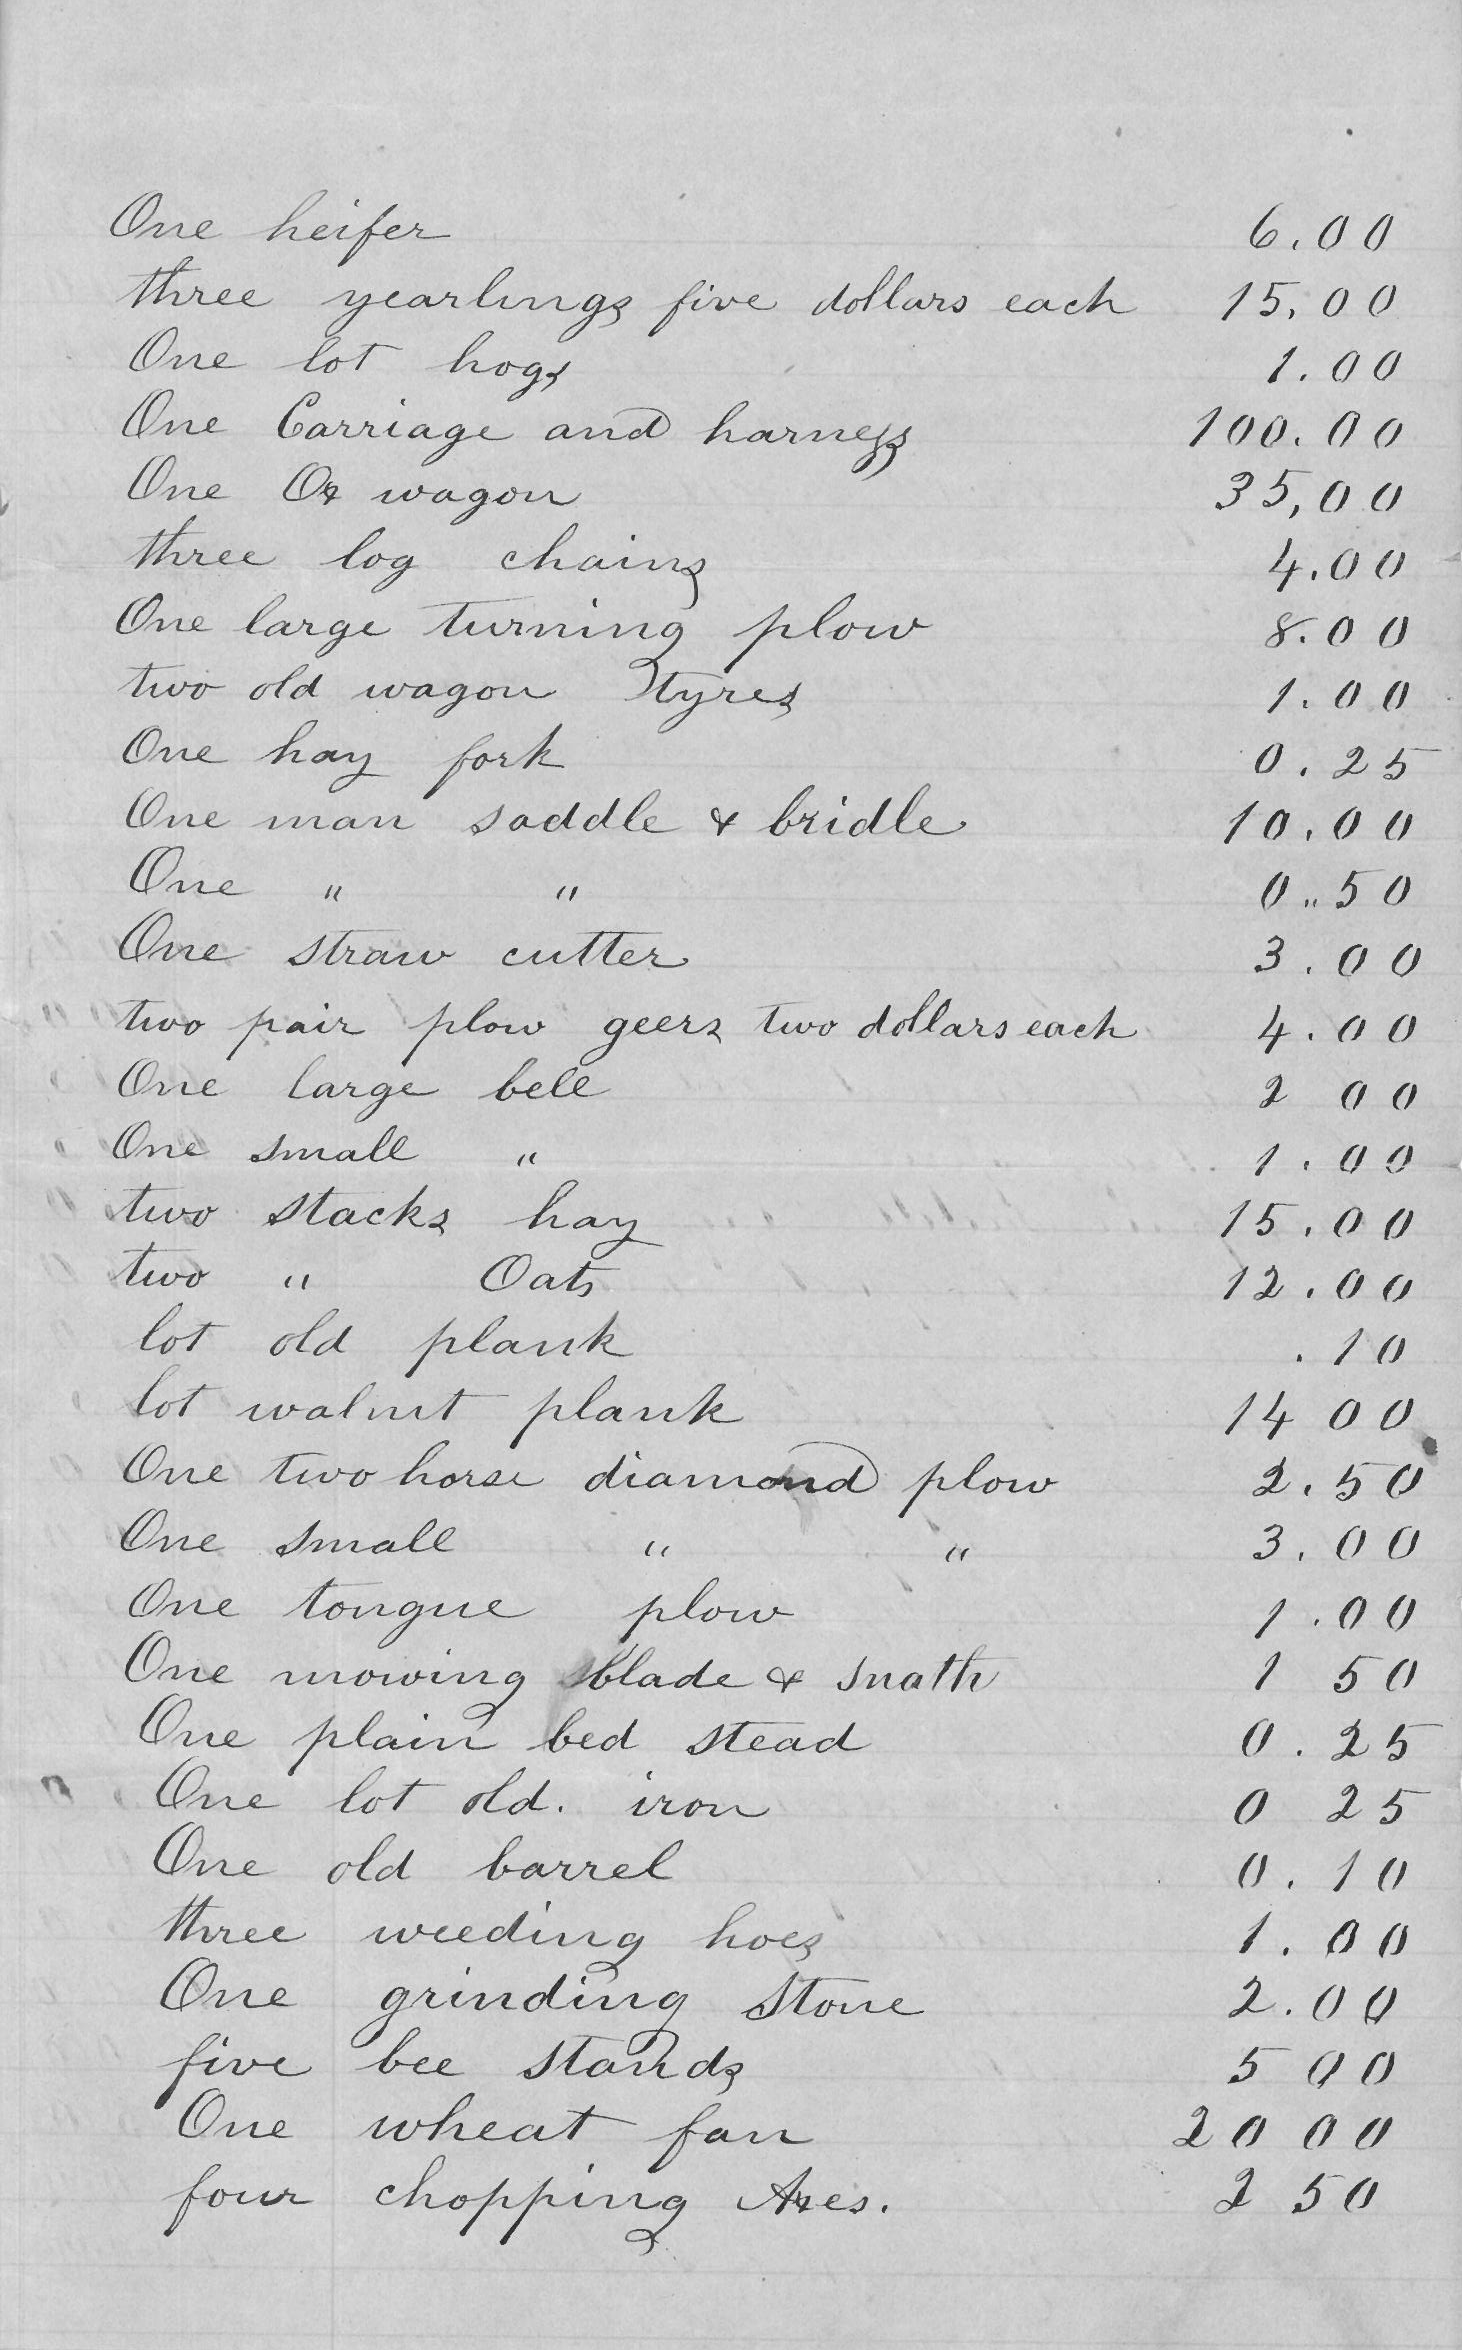 One heifer 6.00
three yearlings five dollars each 15.00
One lot hogs 1.00
One Carriage and harness 100.00
One Ox wagon 35,00
three log chains 4.00
One large turning plow 8.00
two old wagon tyres 1.00
One hay fork 0.25
One man saddle & bridle 10.00
One " " 0"50
One straw cutter 3.00
two pair plow geers two dollars each 4.00
One large bell 2 00
One small " 1.00
two stacks hay 15.00
two " Oats 12.00
lot old plank .10
lot walnut plank 14 00
One two horse diamond plow 2.50
One small " " 3.00
One tongue plow 1.00
One mowing blade & snath 1 50
One plain bed stead 0.25
One lot old. iron 0 25
One old barrel 0.10
three weeding hoes 1.00
One grinding stone 2.00
five bee stands 5 00
One wheat fan 20 00
four chopping Axes. 2 50